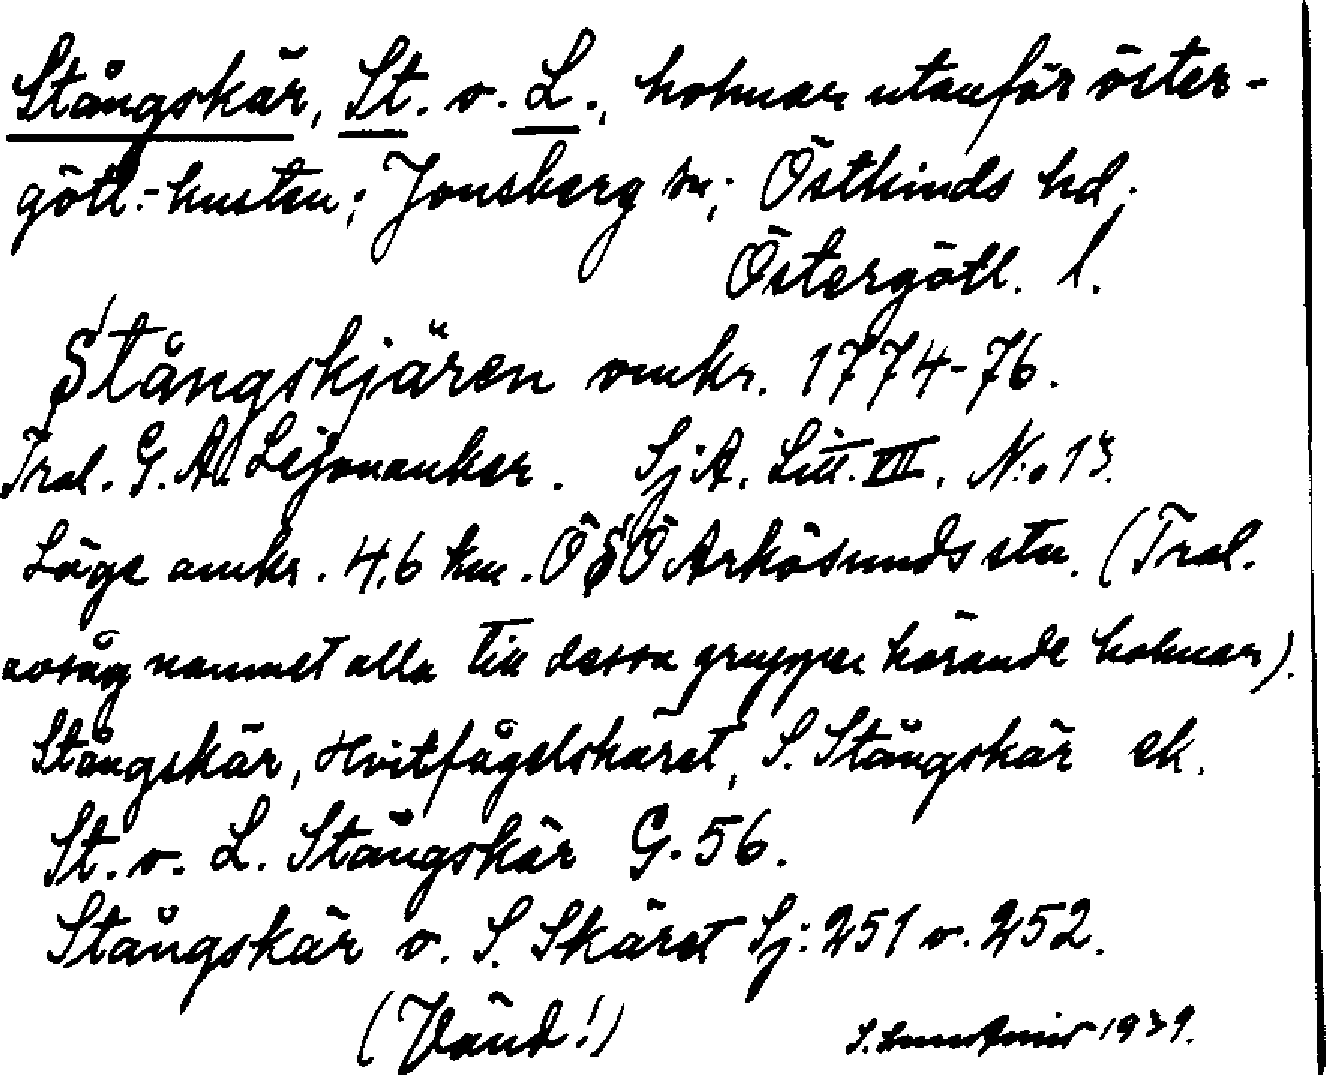 Stångskär, St. o. L., holmar utanför öster-
götl.-kusten; Jonsberg sn; Östkinds hd.
Östergötl. l.
Stångskjären omkr. 1774-76.
Tral. G. A. Lejonanker. SjA. Litt. VII. N:o 13.
Läge omkr. 4,6 km. ÖSÖ Arkösunds stn. (Tral.
avsåg namnet alla till dessa grupper hörande holmar).
Stångskär, Hvitfågelskäret, S. Stångskär ek.
St. o. L. Stångskär G. 56.
Stångskär o. S. Skäret Sj: 251 o. 252.
(Vänd!) 1939.